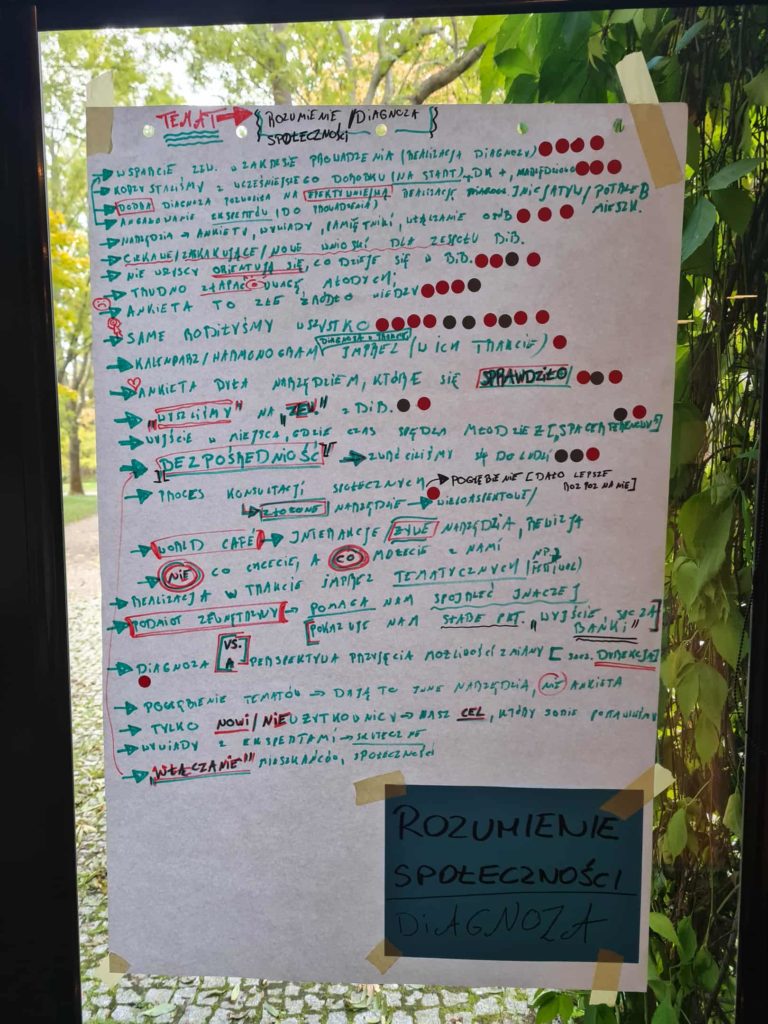 TEMAT → {ROZUMIENIE/DIAGNOZA
SPOŁECZNOŚCI}
→ WSPARCIE ZEW. W ZAKRESIE PROWADZENIA (REALIZACJA DIAGNOZY)
→ KORZYSTALIŚMY Z WCZEŚNIEJSZEGO DOROBKU (NA START), DK+,
→ DOBRA DIAGNOZA POZWOLIŁA NA REALIZACJĘ INICJATYW/POTRZEB
MIESZK.
→ ANGAŻOWANIE EKSPERTÓW (DO PROWADZENIA)
→ NARZĘDZIA → ANKIETY, WYWIADY, PAMIĘTNIKI, WŁĄCZANIE
→ CIEKAWE/ZASKAKUJĄCE/NOWE WNIOSKI DLA ZESPOŁU BIB.
→ NIE WSZYSCY ORIENTUJĄ SIĘ, CO DZIEJE SIĘ W BIB.
→ TRUDNO ZŁAPAĆ UWAGĘ MŁODYCH;
→ ANKIETA TO ZŁE ŹRÓDŁO WIEDZY
→ SAME ROBIŁYŚMY WSZYSTKO
DIAGNOZA W TRAKCIE
→ KALENDARZ/HARMONOGRAM IMPREZ (W ICH TRAKCIE)
→ ANKIETA BYŁA NARZĘDZIEM, KTÓRE SIĘ SPRAWDZIŁO
→ "WYSZLIŚMY" NA "ZEW." Z BIB.
→ WYJŚCIE W MIEJSCA, GDZIE CZAS SPĘDZA MŁODZIEŻ [SPACER TERENOWY]
→ "BEZPOŚREDNIOŚĆ" → ZWRÓCILIŚMY SIĘ DO LUDZI
→ PROCES KONSULTACJI SPOŁECZNYCH → POGŁĘBIENIE [DAŁO LEPSZE
ROZPOZNANIE]
↳ ZŁOŻONE NARZĘDZIE → WIELOASPEKTOWE/
→ WORLD CAFÉ → INTERAKCJE/ŻYWE NARZĘDZIA,
→ NIE CO CHCECIE, A CO MOŻECIE Z NAMI
→ REALIZACJA W TRAKCIE IMPREZ TEMATYCZNYCH (NP. FESTIWAL)
→ PODMIOT ZEWNĘTRZNY → POMAGA NAM SPOJRZEĆ INACZEJ
[POKAZUJE NAM SŁABE PKT. "WYJŚCIE SPOZA
BAŃKI"]
→ DIAGNOZA VS. A PERSPEKTYWA PRZYJĘCIA MOŻLIWOŚCI ZMIANY [DYREKCJA]
→ POGŁĘBIENIE TEMATÓW → DAJĄ TO INNE NARZĘDZIA, NIE ANKIETA
→ TYLKO NOWI/NIEUŻYTKOWNICY → NASZ CEL, KTÓRY SOBIE POSTAWILIŚMY
→ WYWIADY Z EKSPERTAMI → SKUTECZNE
→ "WŁĄCZANIE" MIESZKAŃCÓW, SPOŁECZNOŚCI
ROZUMIENIE
SPOŁECZNOŚCI
DIAGNOZA